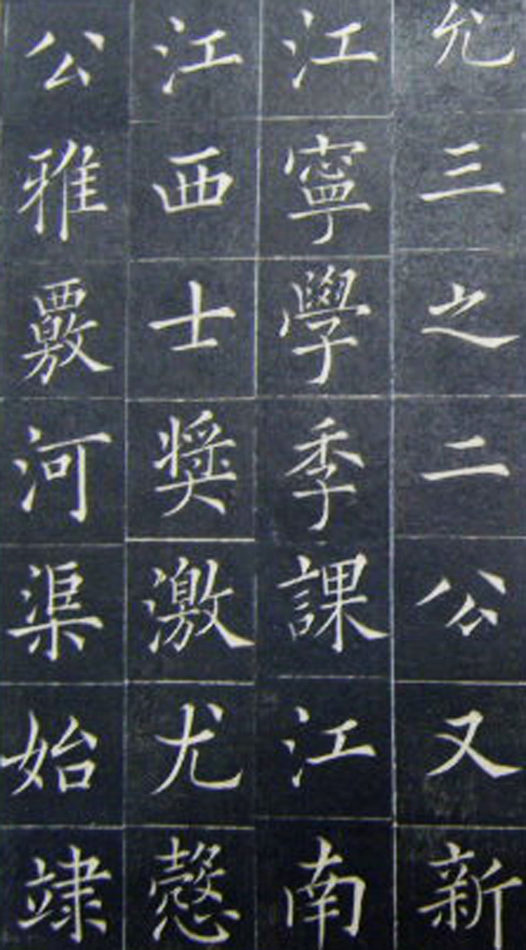 允三之二公又新
江寧學季課江南
江西士獎激尤慤
公雅覈河渠始䇐